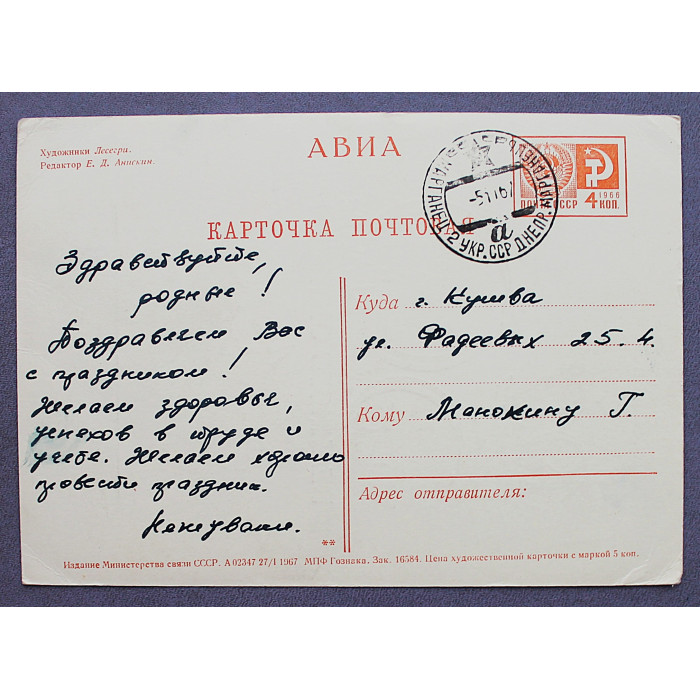 Художники Лесегри.
Редактор Е. Д. Анискин.
АВИА
КАРТОЧКА ПОЧТОВАЯ
МАРГАНЕЦ-2 УКР. ССР ДНЕПР.
а
-5 11 67
ПОЧТА СССР
1966
4 КОП.
Здравствуйте,
родные!
Поздравляем Вас
с праздником!
Желаем здоровья,
успехов в труде и
учебе. Желаем хорошо
провести праздник.
Куда г. Кушва
ул. Фадеевых 25.4.
Кому Манокину Г.
Адрес отправителя:
**
Издание Министерства связи СССР. А 02347 27/I 1967 МПФ Гознака. Зак. 16584. Цена художественной карточки с маркой 5 коп.